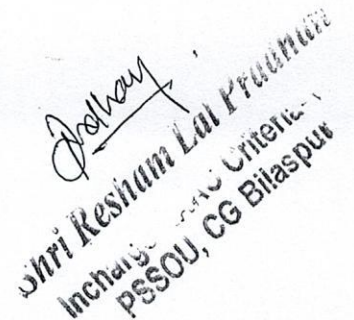 Shri Resham Lal Pradhan
Incharge Criteria
PSSOU, CG Bilaspur